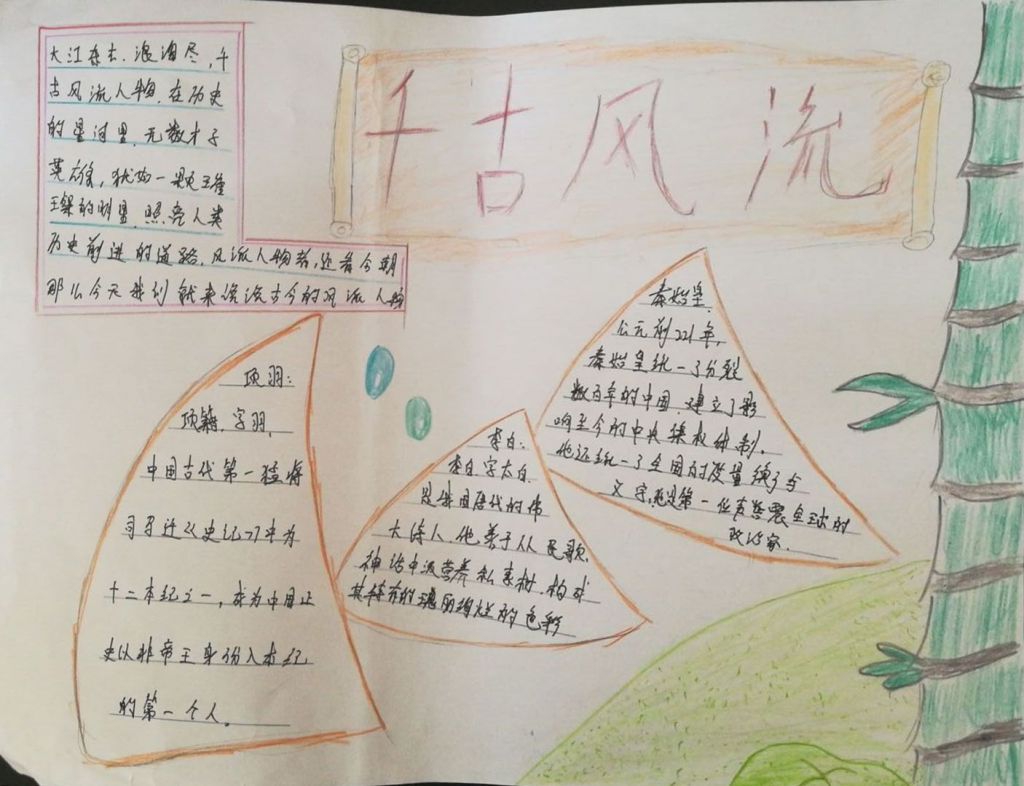 千古风流
大江东去,浪淘尽,千
古风流人物,在历史
的星河里,无数才子
英雄,犹如一颗颗璀
璨的明星,照亮人类
历史前进的道路,风流人物者,还看今朝
那么今天我们就来谈谈古今的风流人物
项羽:
项籍,字羽,
中国古代第一猛将
司马迁《史记》中为
十二本纪之一,成为中国正
史以非帝王身份入本纪
的第一个人。
李白:
李白字太白,
是我国唐代的伟
大诗人,他善于从民歌,
神话中汲营养和素材,构成
其特有的瑰丽绚烂的色彩
秦始皇,
公元前221年,
秦始皇统一了分裂
数百年的中国,建立了影
响至今的中央集权体制。
他还统一了全国的度量衡
文字,他是第一位声誉震全球的
政治家.